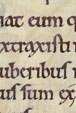 nat eum q
extraxisti
uberibus
us sum ex